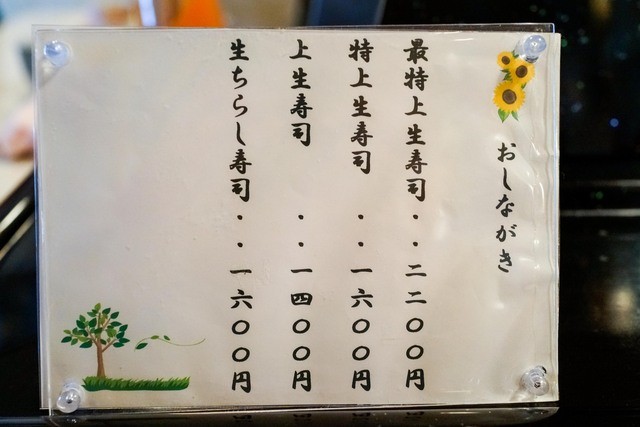 おしながき
最特上生寿司・・二二〇〇円
特上生寿司・・一六〇〇円
上生寿司・・一四〇〇円
生ちらし寿司・・一六〇〇円